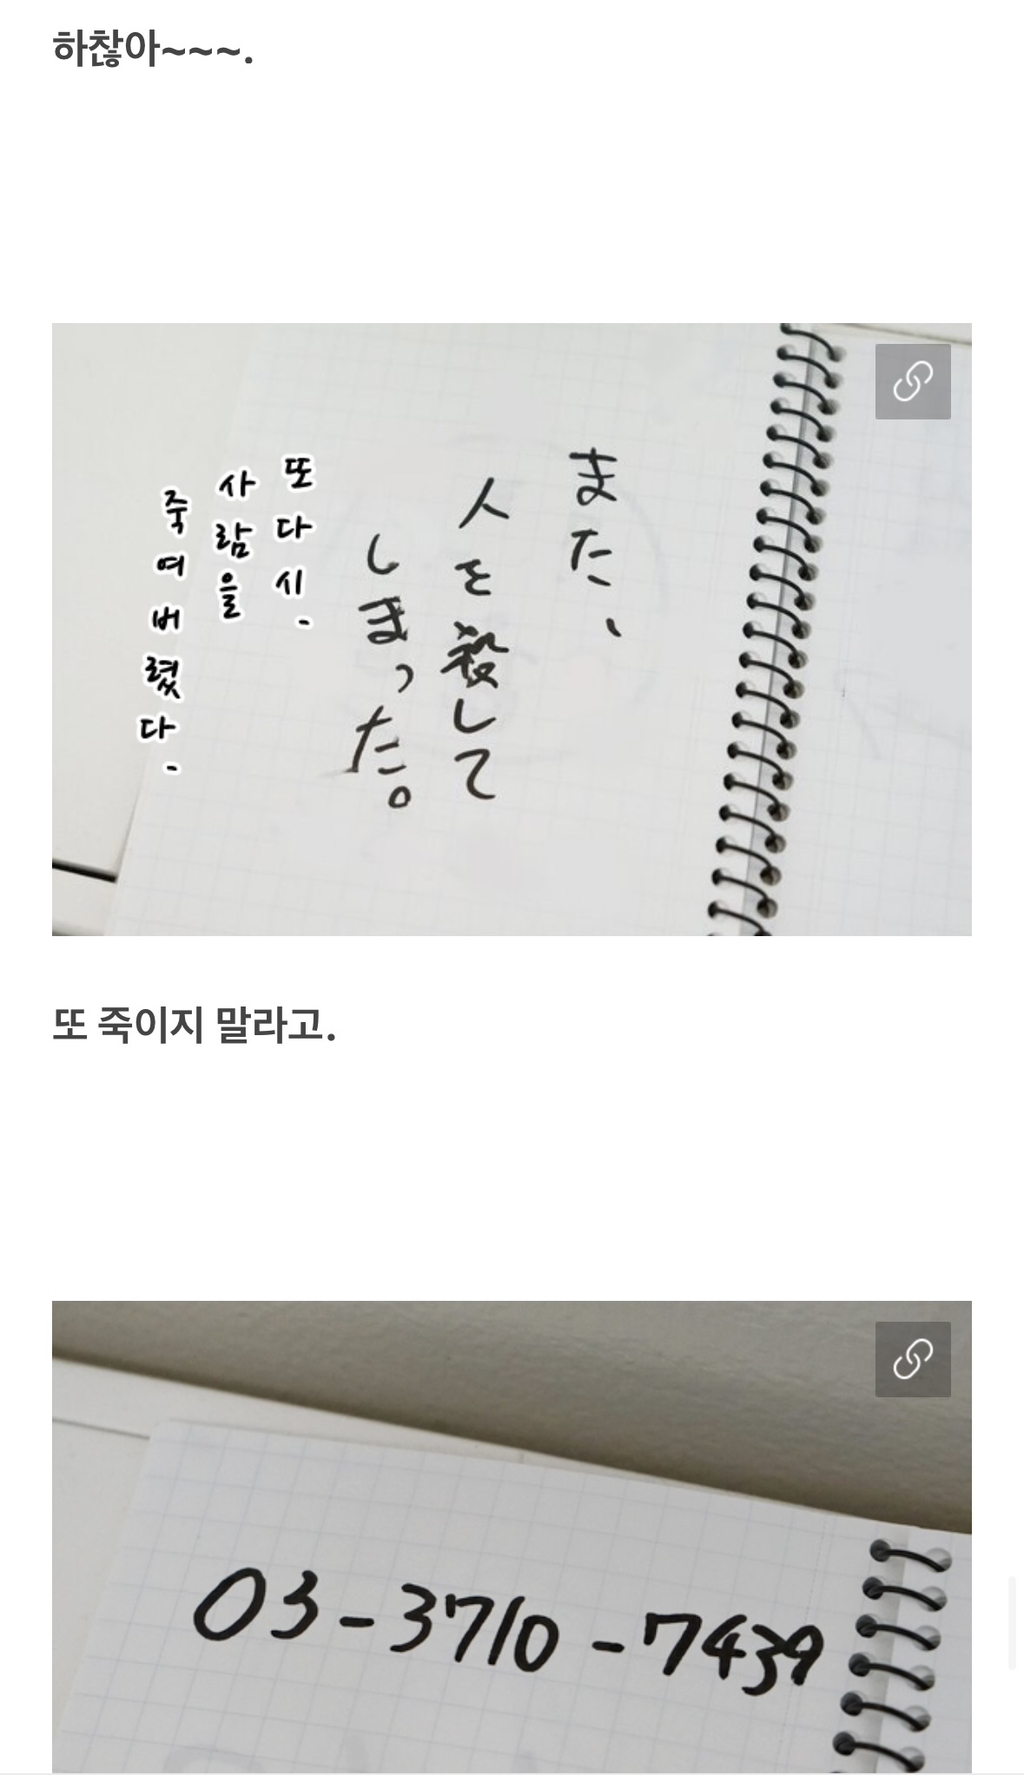 하찮아~~~.
また、
人を殺して
しまった。
또다시.
사람을
죽여버렸다.
또 죽이지 말라고.
03-3710-7439